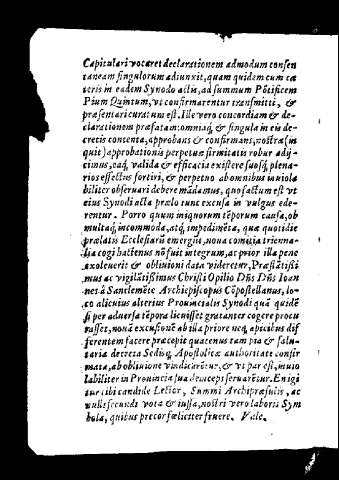 Capitulari vocaret declarationem admodum consen
taneam singulorum adiunxit, quam quidem cum cæ
teris in eadem Synodo actis, ad summum Põtificem
Pium Quintum, vt confirmarentur transmitti, &
præsentari curatum est. Ille vero concordiam & de-
clarationem præfatam: omniaq́, & singula in eis de-
cretis contenta, approbans & confirmans, nostra (in
quit) approbationis perpetuæ firmitatis robur adij-
cimus, eaq́, valida & efficacia existere suosq́, plena-
rios effectus sortiri, & perpetuo ab omnibus inuiola
biliter obseruari debere mãdamus, quo factum est vt
eius Synodi acta prælo tunc excusa in vulgus ede-
rentur. Porro quum iniquorum tẽporum causa, ob
multaq́, incommoda, atq́, impedimẽta, quæ quotidie
prælatis Ecclesiarũ emergũt, noua comitia trienna-
lia cogi hactenus nõ fuit integrum, ac prior illa pene
exoleuerit & obliuioni data videretur, Præstãtissi
mus ac vigilãtissimus Christi Opilio Dñs Dñs Ioan
nes à Sanclemẽte Archiepiscopus Cõpostellanus, lo-
co alicuius alterius Prouincialis Synodi quã quidẽ
si per aduersa tẽpora licuisset gratanter cogere procu
rasset, nouã excusionẽ ab illa priore neq́, apicibus dif
ferentem facere præcepit quatenus tam pia & salu-
taria decreta Sedisq́, Apostolicæ authoritate confir
mata, ab obliuione vindicarẽtur, & vt par est, inuio
labiliter in Prouincia sua deinceps seruarẽtur. En igi
tur tibi candide Lector, Summi Archipræsulis, ac
nulli secundi vota & iussa, nostri vero laboris Sym
bola, quibus precor fœliciter fruere. Vale.